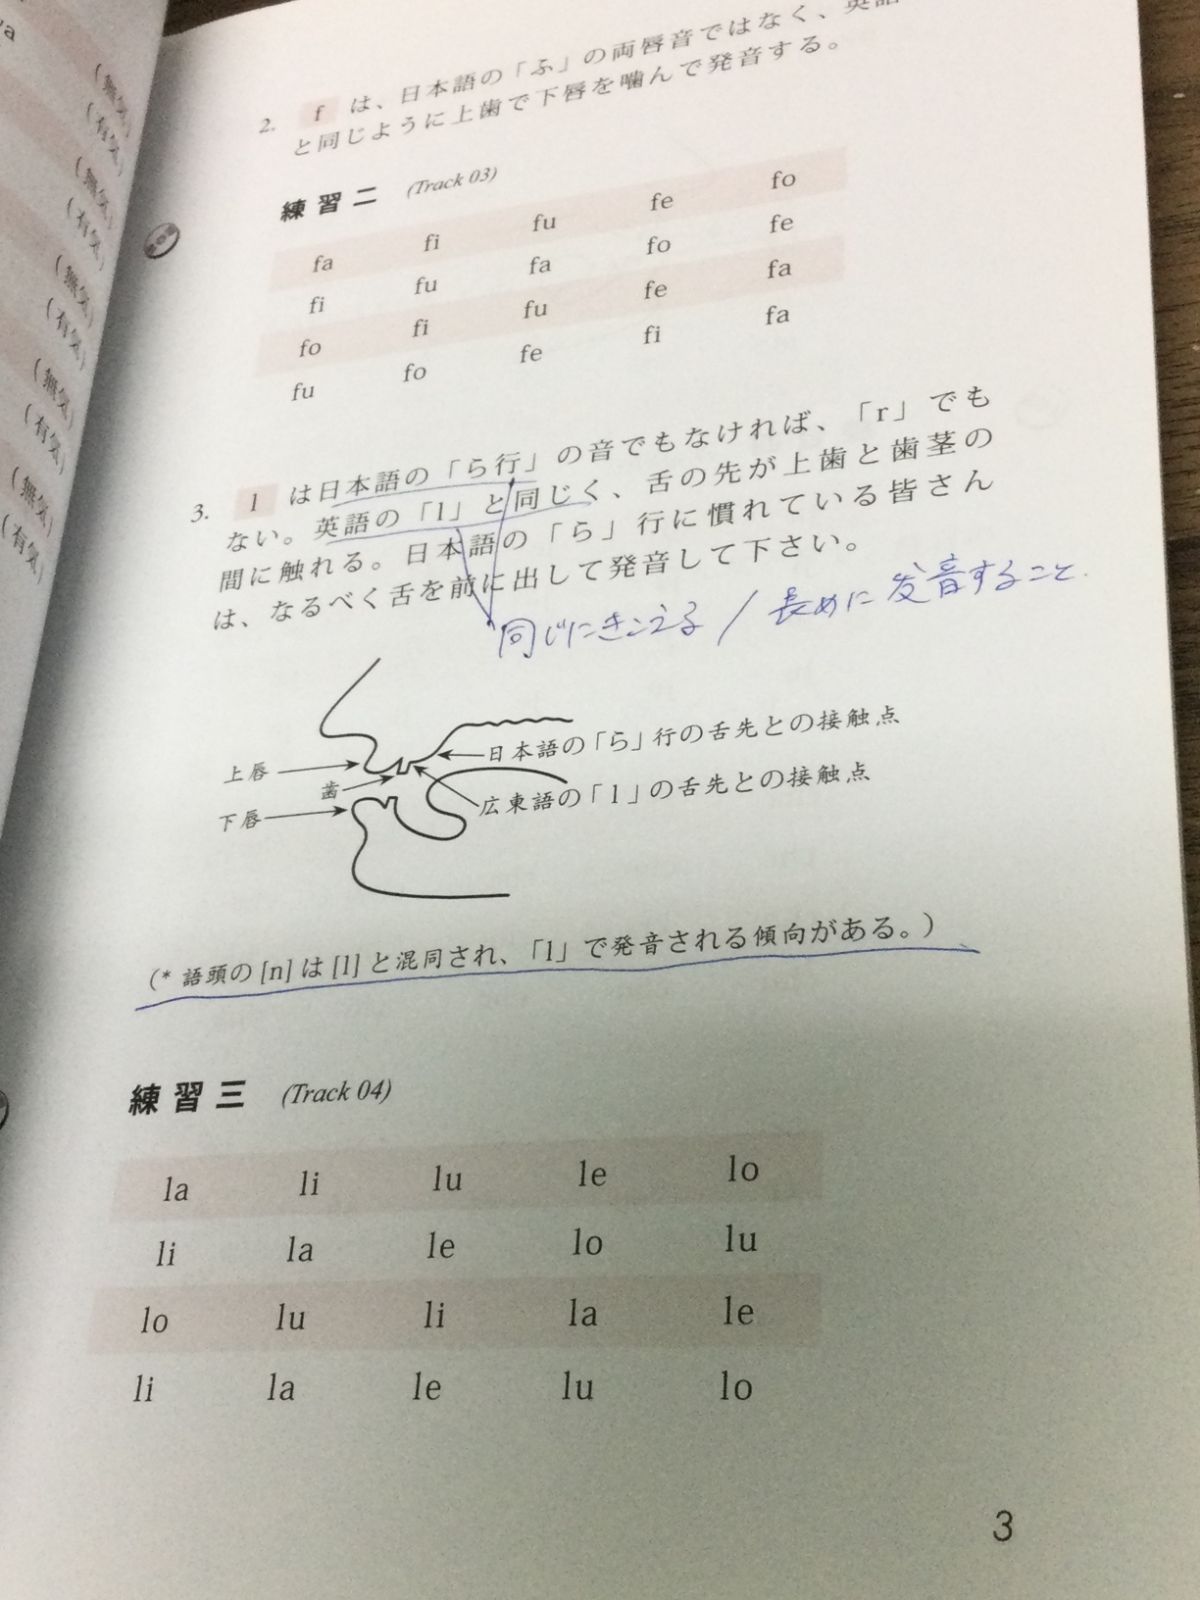 va
(無気)
(有気)
(無気)
(有気)
(無気)
(有気)
(無気)
(有気)
(無気)
(有気)
2. f は、日本語の「ふ」の両唇音ではなく、英語
と同じように上歯で下唇を噛んで発音する。
練習二 (Track 03)
fa fi fu fe fo
fi fu fa fo fe
fo fi fu fe fa
fu fo fe fi fa
3. l は日本語の「ら行」の音でもなければ、「r」でも
ない。英語の「l」と同じく、舌の先が上歯と歯茎の
間に触れる。日本語の「ら」行に慣れている皆さん
は、なるべく舌を前に出して発音して下さい。
同じにきこえる / 長めに发音すること.
上唇
歯
下唇
日本語の「ら」行の舌先との接触点
広東語の「l」の舌先との接触点
(* 語頭の [n] は [l] と混同され、「l」で発音される傾向がある。)
練習三 (Track 04)
la li lu le lo
li la le lo lu
lo lu li la le
li la le lu lo
3